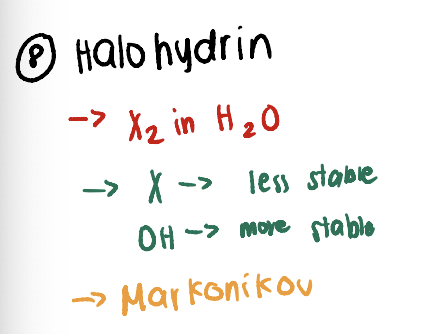 ⑧ Halohydrin
-> X₂ in H₂O
-> X -> less stable
OH -> more stable
-> Markonikov